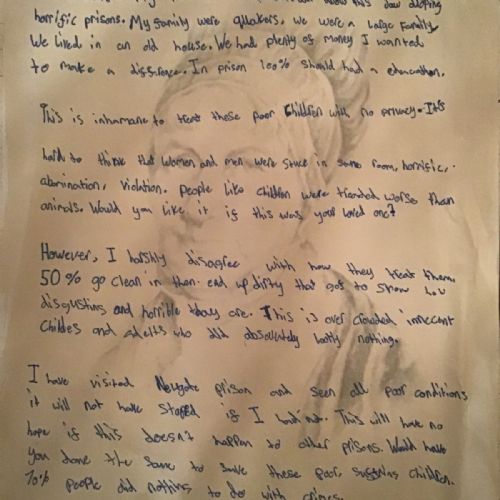 about this slow sloping
horrific prisons. My family were quakers. we were a Large family
We lived in an old house. We had plenty of money I wanted
to make a difference. In prison 100% should had a education.
This is inhumane to treat these poor Children with no privacy. It's
hard to think that women and men were stuck in same room, horrific,
abomination, violation. People like children were treated worse than
animals. Would you like it if this was your loved one?
However, I harshly disagree with how they treat them.
50% go clean in than end up dirty that got to show how
disgusting and horrible they are. This is over crowded innocent
childes and adults who did absolutely nothing.
I have visited Newgate prison and seen all poor conditions
it will not have stoped if I hadnt. This will have no
hope if this doesn't happen to other prisons. Would have
you done the same to these poor children.
70% people did nothing to do with crimes.